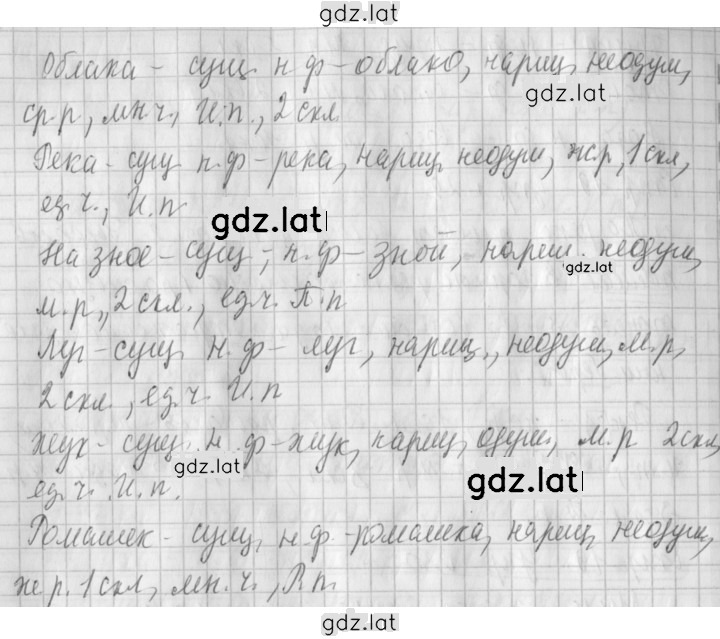 gdz.lat
Облака - сущ н.ф - облако, нариц, неодуш,
gdz.lat
ср.р, мн.ч., И.п., 2 скл
Река - сущ н.ф - река, нариц неодуш, ж.р, 1 скл,
ед.ч., И.п
gdz.lat
На зное - сущ, н.ф - зной, нариц. неодуш,
gdz.lat
м.р, 2 скл., ед.ч. П.п
Луг - сущ н.ф - луг, нариц., неодуш, м.р,
2 скл, ед.ч. И.п
Жук - сущ. н.ф - жук, нариц, одуш, м.р 2 скл,
gdz.lat
ед.ч. И.п.
gdz.lat
Ромашек - сущ, н.ф. - ромашка, нариц, неодуш,
ж.р. 1 скл, мн.ч., Р.п.
gdz.lat